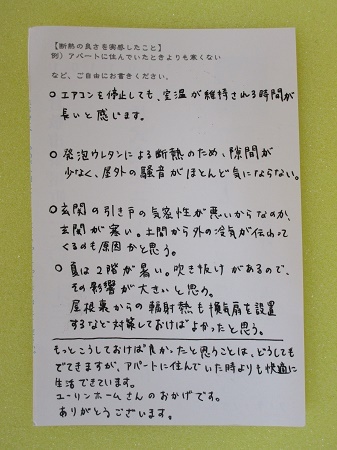 【断熱の良さを実感したこと】
例）アパートに住んでいたときよりも寒くない
など、ご自由にお書きください。
○ エアコンを停止しても、室温が維持される時間が
長いと感じます。
○ 発泡ウレタンによる断熱のため、隙間が
少なく、屋外の騒音がほとんど気にならない。
○ 玄関の引き戸の気密性が悪いからなのか、
玄関が寒い。土間から外の冷気が伝わって
くるのも原因かと思う。
○ 夏は2階が暑い。吹き抜けがあるので、
その影響が大きいと思う。
屋根裏からの輻射熱も換気扇を設置
するなど対策しておけばよかったと思う。
もっとこうしておけば良かったと思うことは、どうしても
でてきますが、アパートに住んでいた時よりも快適に
生活できています。
ユーリンホームさんのおかげです。
ありがとうございます。